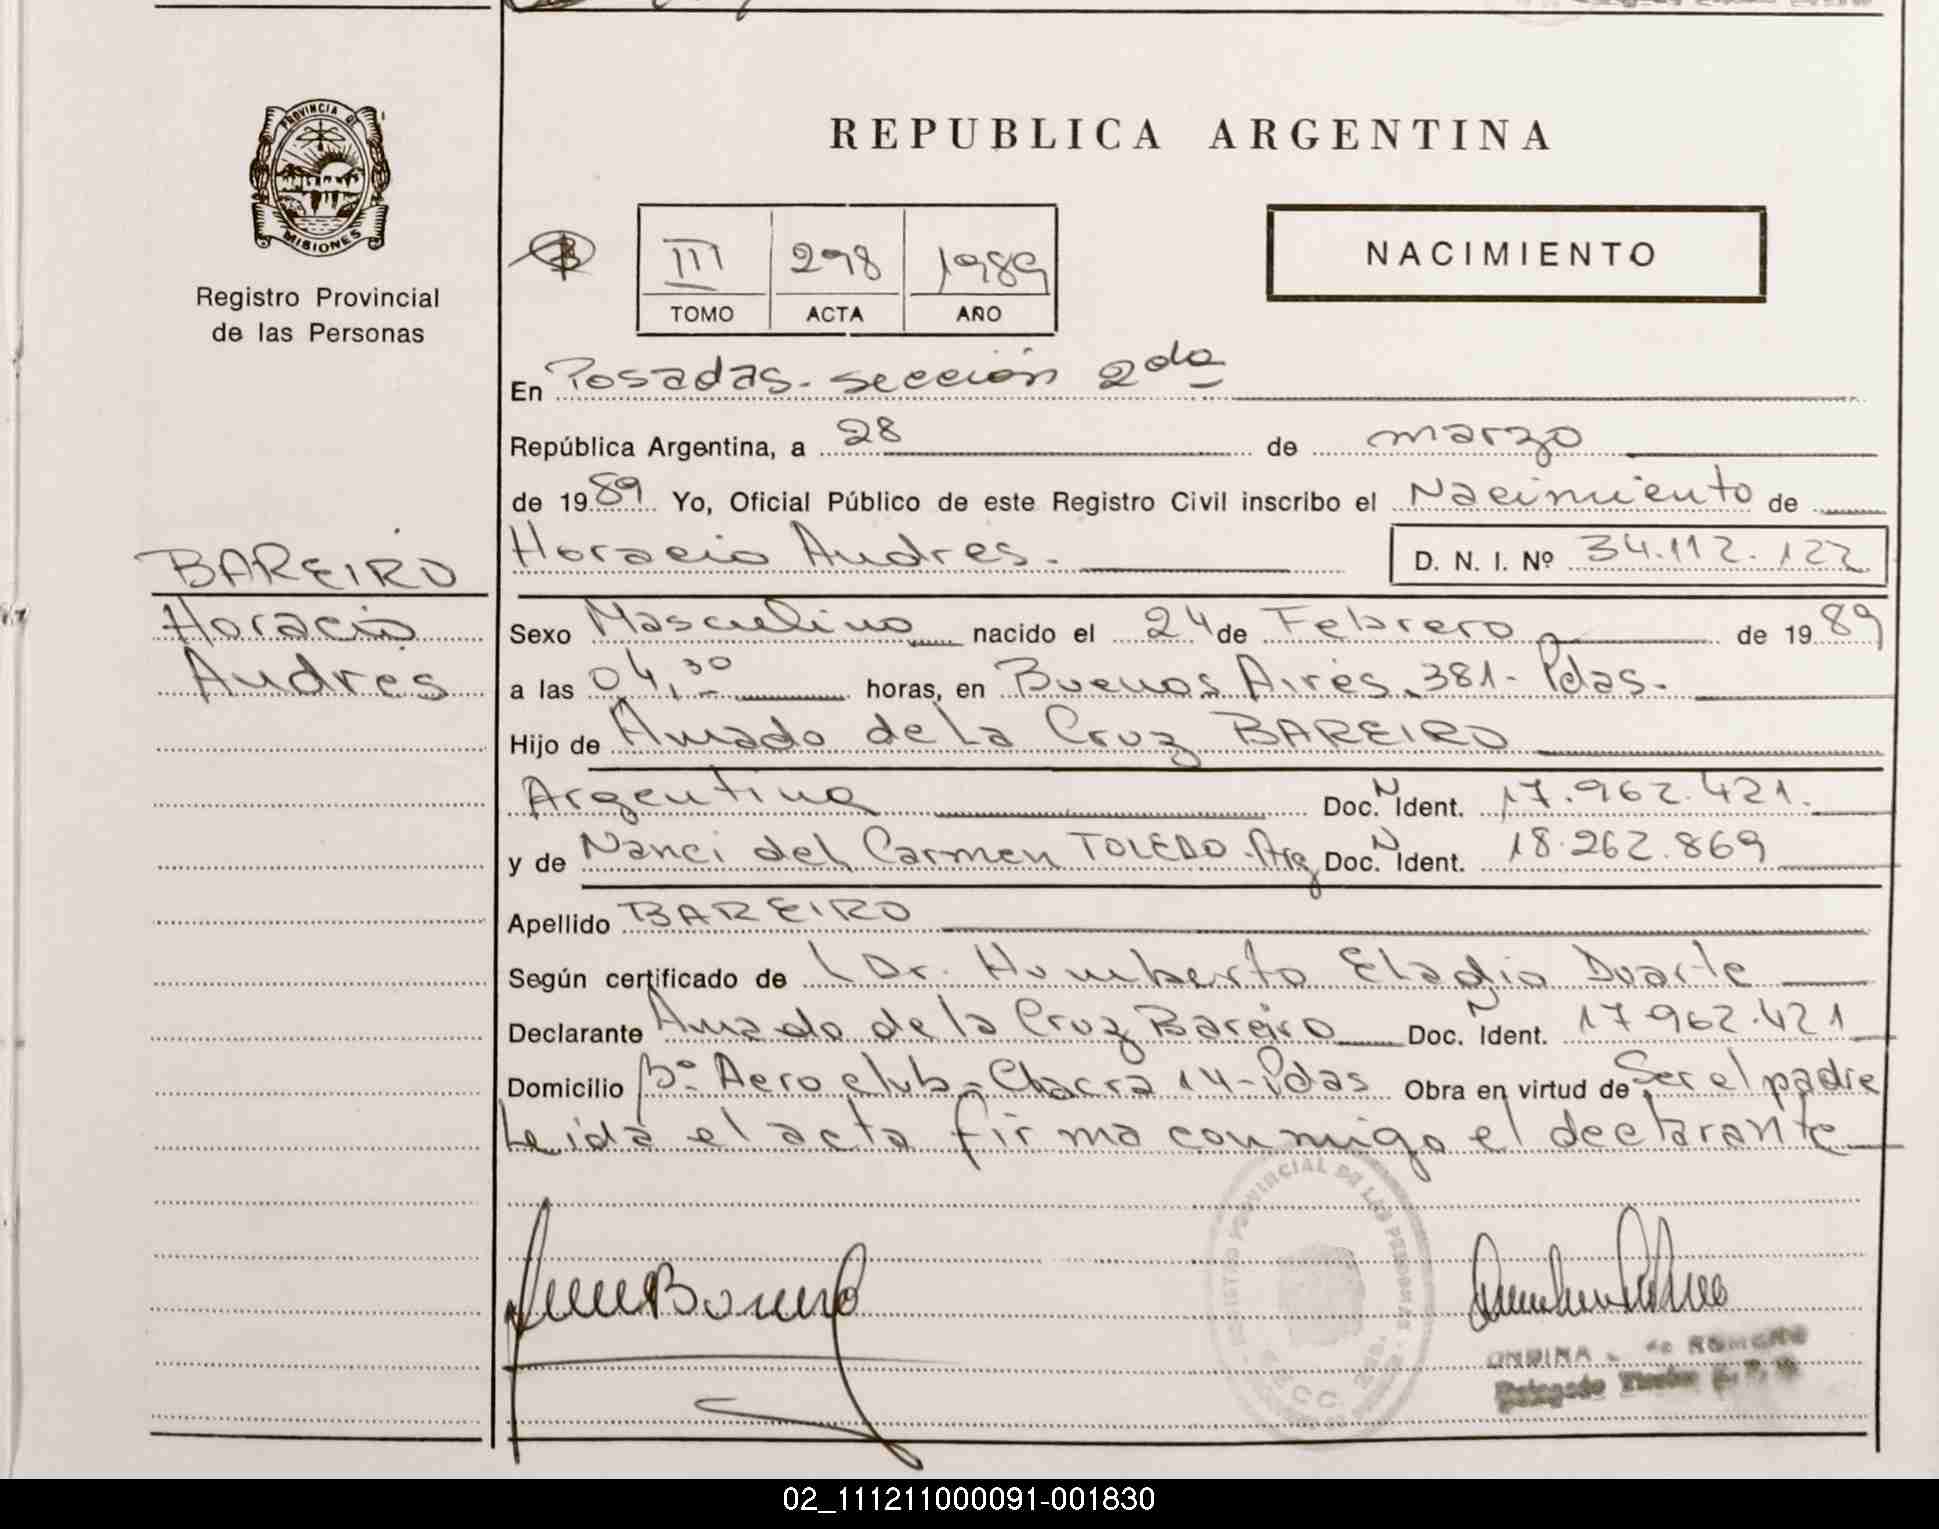 PROVINCIA DE
MISIONES
Registro Provincial
de las Personas
REPUBLICA ARGENTINA
III 298 1989
TOMO ACTA AÑO
NACIMIENTO
En Posadas. sección 2da
República Argentina, a 28 de marzo
de 1989 Yo, Oficial Público de este Registro Civil inscribo el Nacimiento de
Horacio Andres. D. N. I. Nº 34.112.122
BAREIRO
Horacio
Andres
Sexo Masculino nacido el 24 de Febrero de 1989
a las 04,30 horas, en Buenos Aires. 381- Pdas.
Hijo de Amado de La Cruz BAREIRO
Argentina Doc. N Ident. 17.962.421.
y de Nanci del Carmen TOLEDO. Arg Doc. N Ident. 18.262.869
Apellido BAREIRO
Según certificado de Dr. Humberto Eladio Duarte
Declarante Amado de la Cruz Bareiro Doc. N Ident. 17.962.421
Domicilio Bº Aero club - Chacra 14 - Pdas Obra en virtud de Ser el padre
Leida el acta firma conmigo el declarante
REGISTRO PROVINCIAL DE LAS PERSONAS
ONDINA de ROMERO
Delegado
02_111211000091-001830